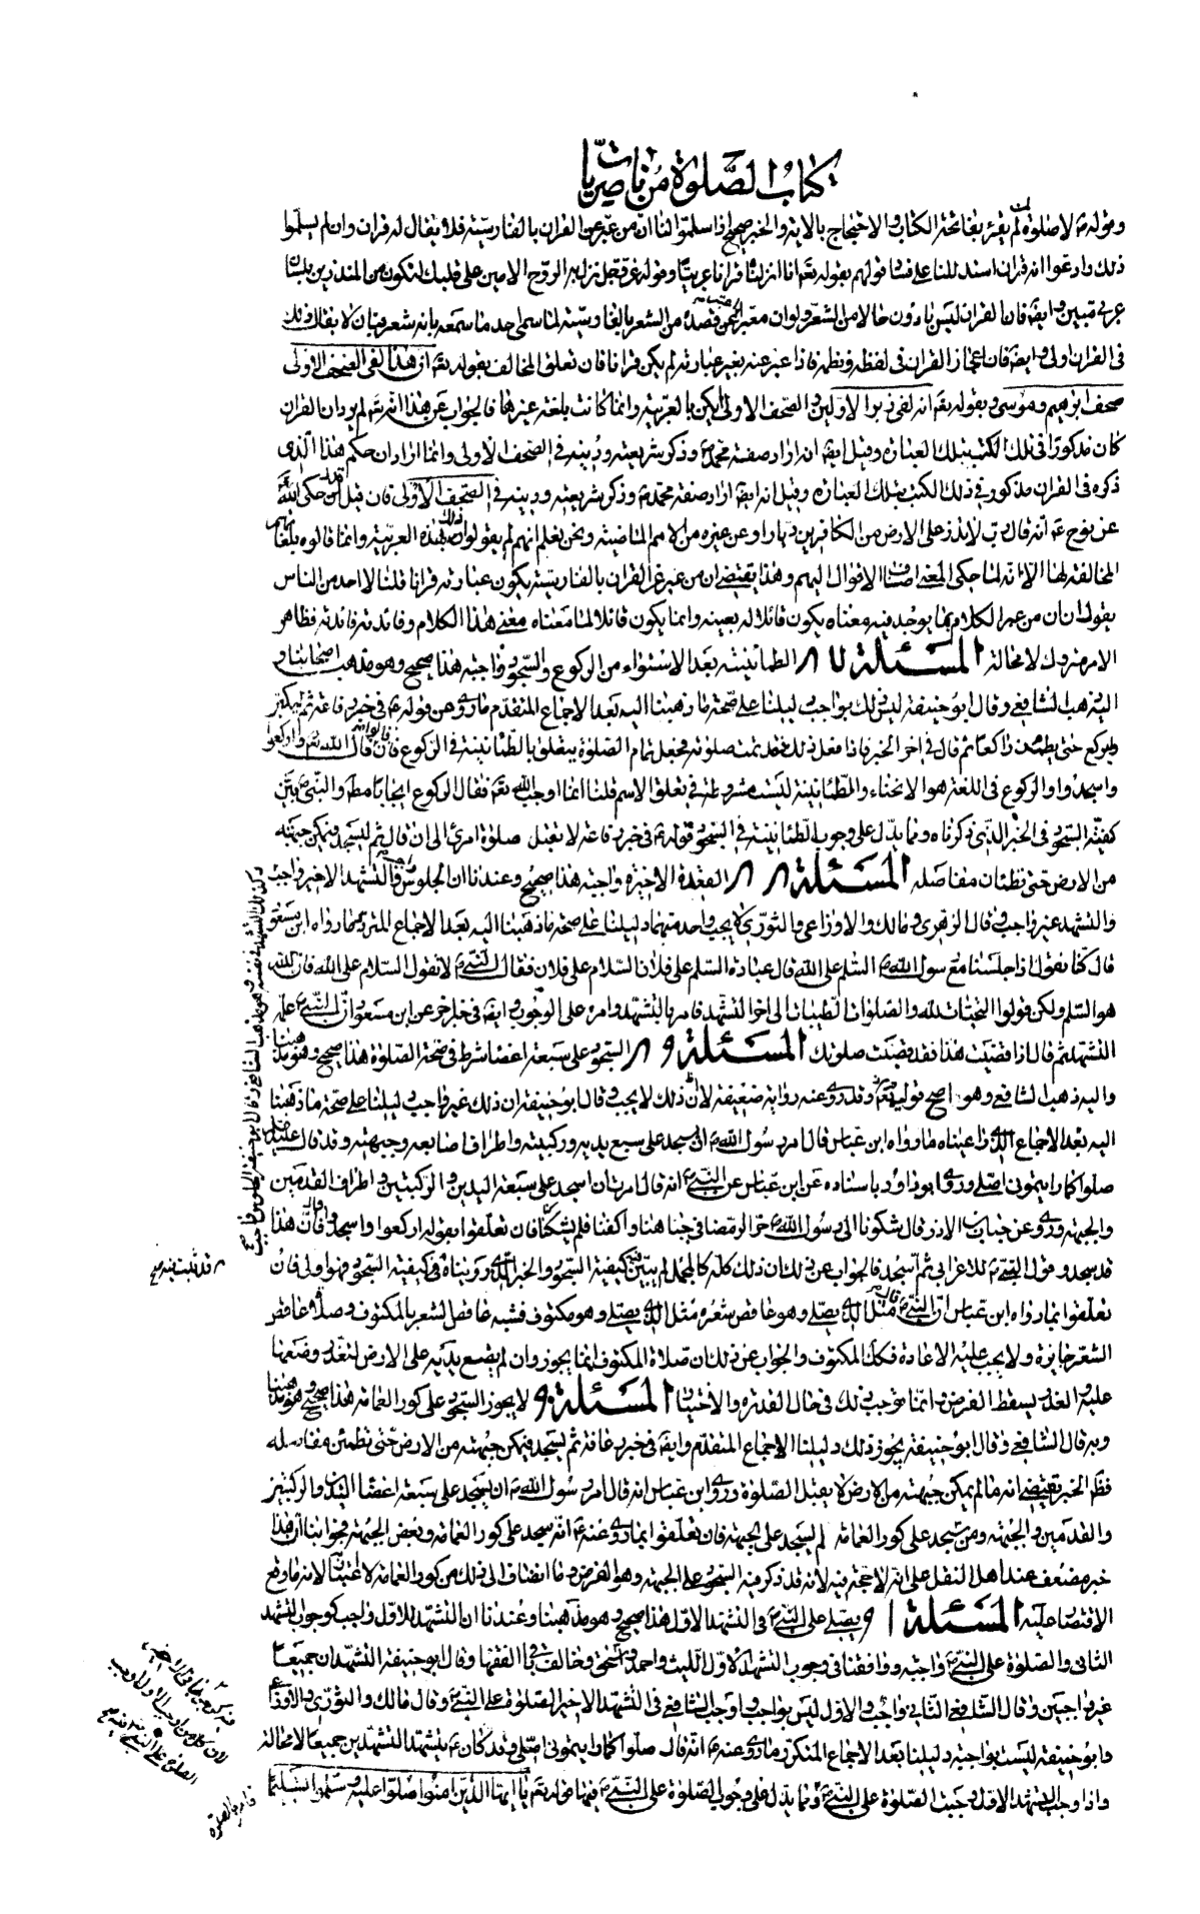 كتاب الصلوة من ناصريات
وقوله ع لا صلوة لمن لم يقرئ بفاتحة الكتاب والاحتجاج بالاية والخبر صحيح اذا سلموا لنا ان من عبر عن القران بالفارسية فلا يقال له قران وان لم يسلموا
ذلك وادعوا انه قران استدللنا على فساد قولهم بقوله تعم انا انزلناه قرانا عربيا وقوله عز وجل نزل به الروح الامين على قلبك لتكون من المنذرين بلسان
عربي مبين وايضا فان القران ليس بادون حالا من الشعر ولو ان معبرا عبر عن قصيدة من الشعر بالفارسية لما سمى احد ما سمعه بانه شعر فبان لا يقال ذلك
في القران اولى وايضا فان اعجاز القران في لفظه ونظمه فاذا عبر عنه بغير عبارته لم يكن قرانا فان تعلق المخالف بقوله تعم ان هذا لفي الصحف الاولى
صحف ابرهيم وموسى وبقوله تعم انه لفي زبر الاولين والصحف الاولى لم يكن بالعربية وانما كانت بلغة غيرها فالجواب عن هذا انه تعم لم يرد ان القران
كان مذكورا في تلك الكتب بتلك العبارة وقيل ايضا انه اراد صفة محمد ص وذكر شريعته ودينه في الصحف الاولى وانما اراد ان حكم هذا الذي
ذكره في القران مذكور في ذلك الكتب بتلك العبارة وقيل انه ايضا اراد صفة محمد ص وذكر شريعته ودينه في الصحف الاولى فان قيل قد حكى الله
عن نوح ع انه قال رب لا تذر على الارض من الكافرين ديارا وعن غيره من الامم الماضية ونحن نعلم انهم لم يقولوا ذلك بهذه العربية وانما قالوه بلغاتهم
المخالفة لهذا الا انه لما حكى المعنى اضاف الاقوال اليهم وهذا يقتضي ان من عبر عن القران بالفارسية يكون عبارته قرانا قلنا لا احد من الناس
يقول ان من عبر الكلام بما يوجد فيه معناه يكون قائلا له بعينه وانما يكون قائلا لما معناه معنى هذا الكلام وفائدته فائدته فظاهر
الامر متروك لا محالة المسئلة ٨٧ الطمانينة بعد الاستواء من الركوع والسجود واجبة هذا صحيح وهو مذهب اصحابنا و
اليه ذهب الشافعي وقال ابو حنيفة ليس ذلك بواجب دليلنا على صحة ما ذهبنا اليه بعد الاجماع المتقدم ما روى من قوله ع في خبر رفاعة ثم ليكبر
وليركع حتى يطمئن راكعا ثم قال في اخر الخبر فاذا فعل ذلك فقد تمت صلوته فجعل تمام الصلوة يتعلق بالطمانينة في الركوع فان قالوا قال الله تعم واركعوا
واسجدوا والركوع في اللغة هو الانحناء والطمانينة ليست مشروطة في تعلق الاسم قلنا انما اوجب الله تعم فقال الركوع ايجابا مطلقا والنبي ص بين
كيفية السجود في الخبر الذي ذكرناه ومما يدل على وجوب الطمانينة في السجود قوله ع في خبر رفاعة لا يقبل صلوة امرئ الى ان قال ثم ليسجد فيمكن جبهته
من الارض حتى تطمئن مفاصله المسئلة ٨٨ القعدة الاخيرة واجبة هذا صحيح وعندنا ان الجلوس في التشهد الاخير واجب
والتشهد غير واجب وقال الزهري ومالك والاوزاعي والثوري لا يجب واحد منهما دليلنا على صحة ما ذهبنا اليه بعد الاجماع المتردد ما رواه ابن مسعود
قال كنا نقول اذا جلسنا مع رسول الله ص السلم على الله قال عبادة السلم على فلان السلام على فلان فقال النبي ص لا تقول السلام على الله فان الله
هو السلم ولكن قولوا التحيات لله والصلوات الطيبات الى اخر التشهد فامر بالتشهد وامره على الوجوب وايضا في خبر اخر عن ابن مسعود ان النبي ص علمه
التشهد ثم قال اذا قضيت هذا فقد قضيت صلوتك المسئلة ٨٩ السجود على سبعة اعضاء شرط في صحة الصلوة هذا صحيح وهو مذهبنا
واليه ذهب الشافعي وهو اصح قوليه وقد روى عنه رواية ضعيفة لان ذلك لا يجب وقال ابو حنيفة ان ذلك غير واجب دليلنا على صحة ما ذهبنا
اليه بعد الاجماع الذي راعيناه ما رواه ابن عباس قال امر رسول الله ص ان اسجد على سبع يديه وركبتيه واطراف اصابعه وجبهته وقد قال عليه السلم
صلوا كما رايتموني اصلي وروى ابو داود باسناده عن ابن عباس عن النبي ص انه قال امرت ان اسجد على سبعة اليدين والركبتين واطراف القدمين
والجبهة وروى عن خباب بن الارت قال شكونا الى رسول الله ص حر الرمضا في جباهنا واكفنا فلم يشكنا فان تعلقوا بقوله اركعوا واسجدوا فان هذا
قد سجد وقول النبي ص للاعرابي ثم اسجد فالجواب عن ذلك ان ذلك كله كالمجمل لم يبين فيه كيفية السجود والخبر الذي رويناه في كيفية السجود فهو اولى فان
تعلقوا بما رواه ابن عباس ان النبي ص قال مثل الذي يصلي وهو عاقص شعره مثل الذي يصلي وهو مكتوف فشبه عاقص الشعر بالمكتوف وصلاة عاقص
الشعر جايزة ولا يجب عليه الاعادة فكذلك المكتوف والجواب عن ذلك ان صلاة المكتوف انما يجوز وان لم يضع يديه على الارض لتعذر وضعهما
عليه والعذر يسقط الفرض وانما نوجب ذلك في حال القدرة والاختيار المسئلة ٩٠ لا يجوز السجود على كور العمامة هذا صحيح وهو مذهبنا
وبه قال الشافعي وقال ابو حنيفة يجوز ذلك دليلنا الاجماع المتقدم وايضا في خبر رفاعة ثم يسجد فيمكن جبهته من الارض حتى تطمئن مفاصله
فظاهر الخبر يقتضي انه ما لم يمكن جبهته من الارض لا يقبل الصلوة وروى ابن عباس انه قال امر رسول الله ص ان يسجد على سبعة اعضا اليدين والركبتين
والقدمين والجبهة ومن سجد على كور العمامة لم يسجد على الجبهة فان تعلقوا بما روى عنه ع انه سجد على كور العمامة وبعض الجبهة فجوابنا ان هذا
خبر مضعف عند اهل النقل على انه لا حجة فيه لانه قد ذكر فيه السجود على الجبهة وهو الفرض وما انضاف الى ذلك من كور العمامة لا اعتبار لانه ما وقع
الاقتصار عليه المسئلة ٩١ ويصلي على النبي ص في التشهد الاول هذا صحيح وهو مذهبنا وعندنا ان التشهد الاول واجب كوجوب التشهد
الثاني والصلوة على النبي ص واجبة ووافقنا في وجوب التشهد الاول الليث واحمد واسحق وخالف باقي الفقها وقال ابو حنيفة التشهدان جميعا
غير واجبين وقال الشافعي الثاني واجب والاول ليس بواجب واوجب الشافعي في التشهد الاخير الصلوة على النبي ص وقال مالك والثوري والاوزاعي
وابو حنيفة ليست بواجبة دليلنا بعد الاجماع المتكرر ما روى عنه ع انه قال صلوا كما رايتموني اصلي وقد كان ع يتشهد التشهدين جميعا لا محالة
واذا وجب التشهد الاول وجبت الصلوة على النبي ص ومما يدل على وجوب الصلوة على النبي ص فيهما قوله تعم يا ايها الذين امنوا صلوا عليه وسلموا تسليما
وكذلك التشهد فيه نفسه وهو مذهب الشافعي وقال ابو حنيفة الجلوس واجب
فامر بالصلوة